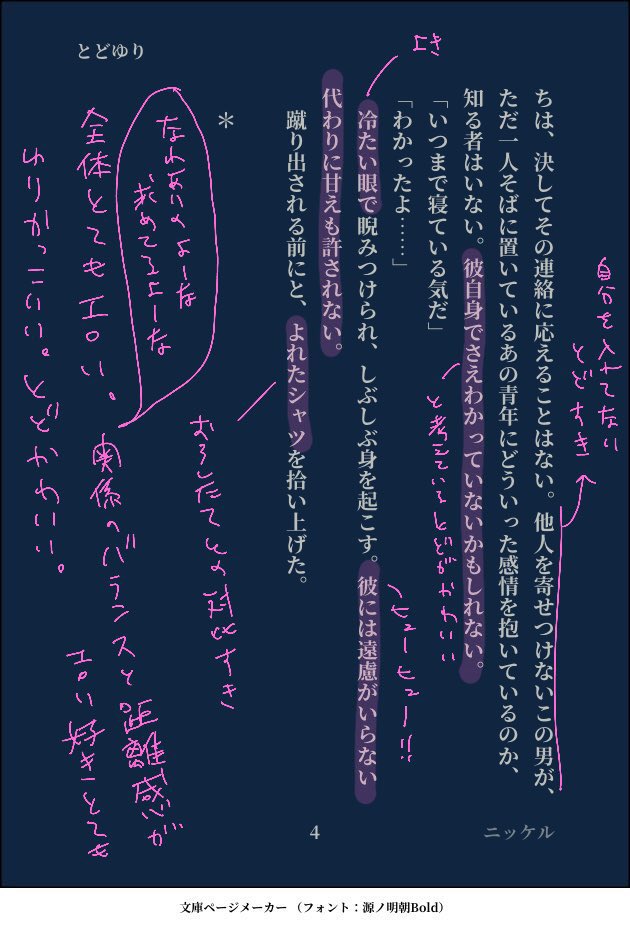 とどゆり
よき
ちは、決してその連絡に応えることはない。他人を寄せつけないこの男が、
ただ一人そばに置いているあの青年にどういった感情を抱いているのか、
知る者はいない。彼自身でさえわかっていないかもしれない。
「いつまで寝ている気だ」
「わかったよ……」
冷たい眼で睨みつけられ、しぶしぶ身を起こす。彼には遠慮がいらない
代わりに甘えも許されない。
蹴り出される前にと、よれたシャツを拾い上げた。
＊
自分を入れてない
とどすき
と考えているとどがかわいい
ヒューヒュー!!
おろしたてとの対比すき
なれあいのよーな
求めてるよーな
関係のバランスと距離感が
エロい好きとても
全体とてもエロい。
ゆりかっこいい。とどかわいい。
4
ニッケル
文庫ページメーカー（フォント：源ノ明朝Bold）